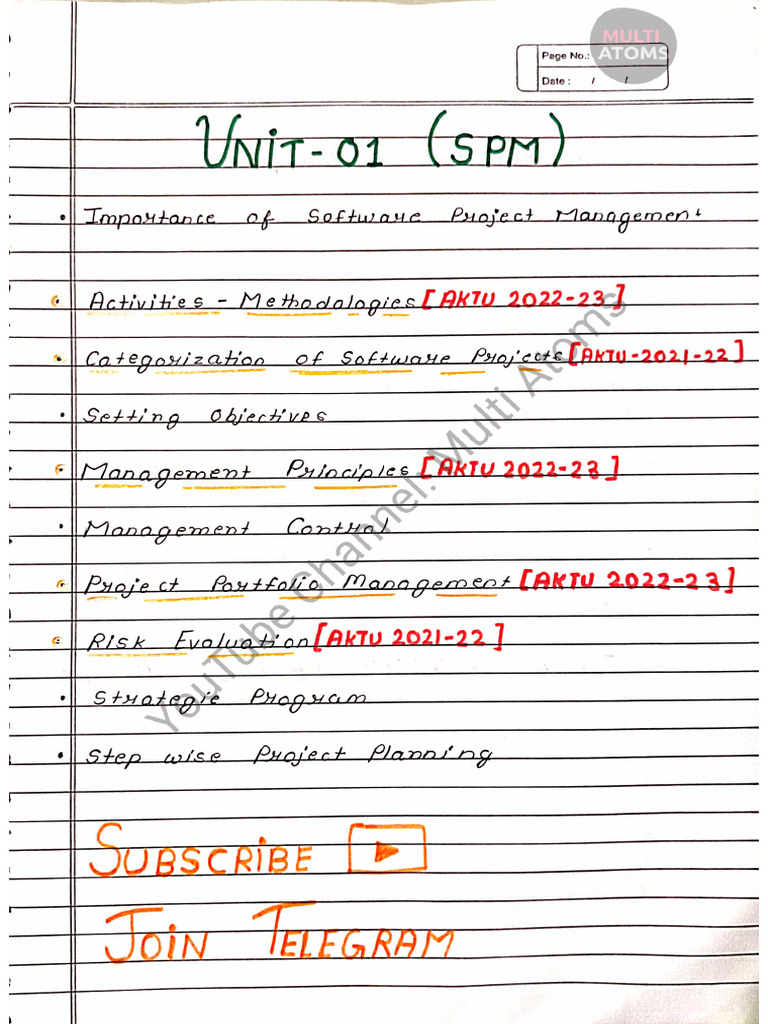 MULTI
ATOMS
Page No.:
Date : / /
UNIT-01 (SPM)
• Importance of Software Project Management
• Activities - Methodologies [AKTU 2022-23]
• Categorization of Software Projects [AKTU-2021-22]
• Setting Objectives
• Management Principles [AKTU 2022-23]
• Management Control
• Project Portfolio Management [AKTU 2022-23]
• Risk Evaluation [AKTU 2021-22]
• Strategic Program
• Step wise Project Planning
YouTube Channel: Multi Atoms
SUBSCRIBE
JOIN TELEGRAM